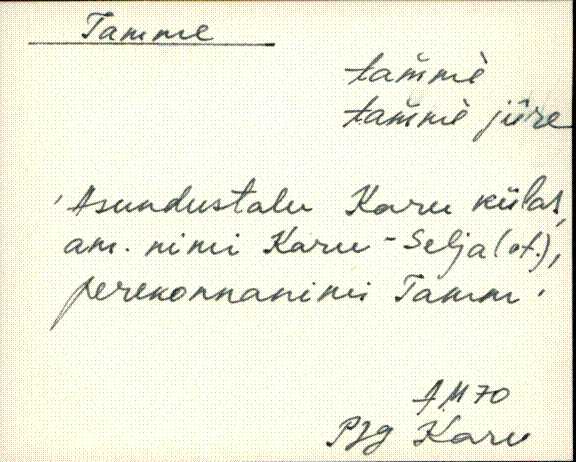 Tamme
tam̆mè
tam̆mè jûre
'Asundustalu Karu külas,
am. nimi Karu-Selja (of.),
perekonnanimi Tamm'
AM70
PJg Karu